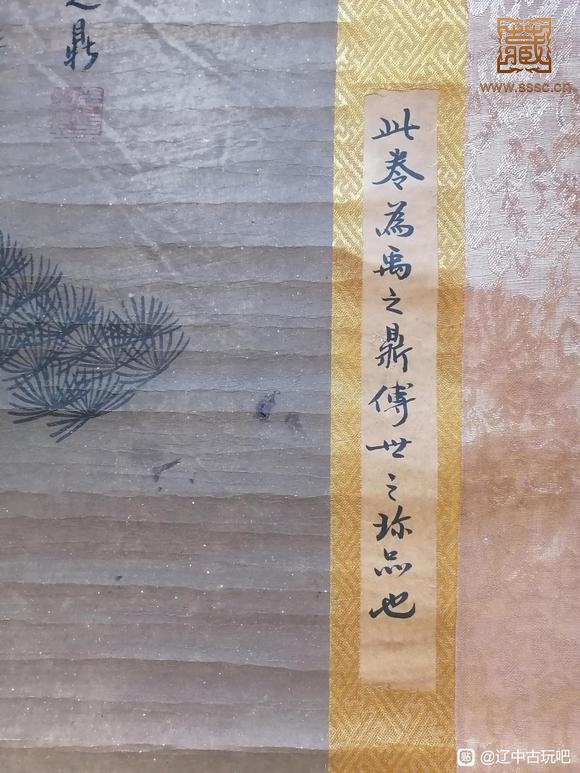 之鼎
此卷為禹之鼎傅世之珎品也
藏
www.sssc.cn
@辽中古玩吧